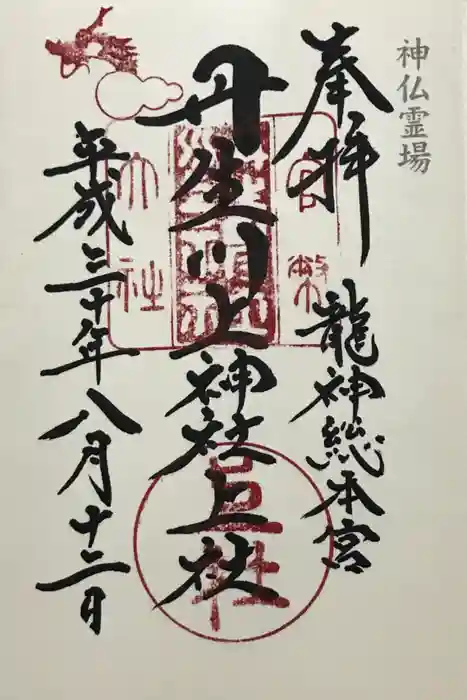 神仏霊場
奉拝
龍神総本宮
丹生川上神社上社
平成三十年八月十二日
官幣
大社
上社